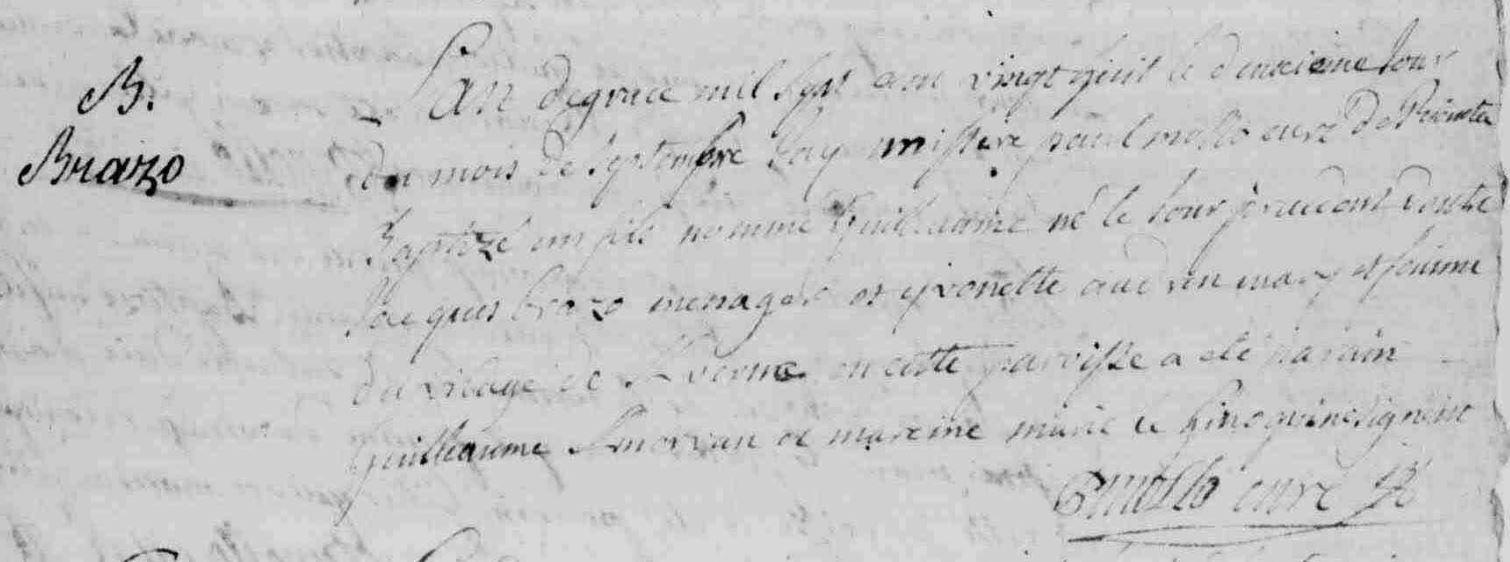 B.
Brazo
L'an de grace mil sept cent vingt huit le deuxieme Jour
du mois de Septembre Jay missire paul mollo curé de
Baptizé un fils nommé Guillaume né le Jour precedent de
Jacques brazo menager et yvonette mary et femme
du vilage de en cette paroisse a eté parain
Guillaume et mareine marie le qui ne signent
P mollo curé